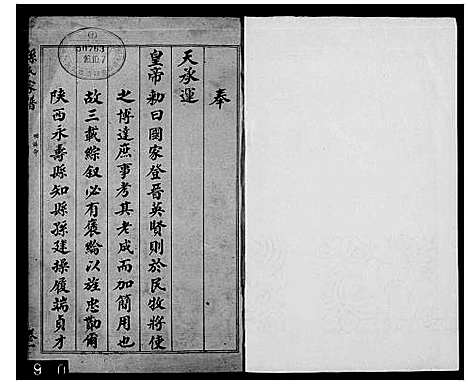 奉
天承運
皇帝勅曰國家登晉英賢則於民牧將使
之博達庶事考其老成而加簡用也
故三載綜叙必有褒綸以旌忠勤爾
陕西永壽縣知縣孫建操履端貞才
孫氏家譜